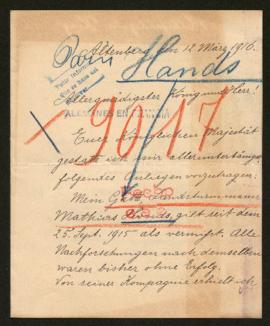 Altenberg, den 12. März 1916.
Hands
Allergnädigster König und Herr!
ALEMANES EN
96/17
Euer Königlichen Majestät
gestatte ich mir alleruntertänigst
folgendes Anliegen vorzutragen:
Mein Landsturmmann
Mathias gilt seit dem
25. Sept. 1915 als vermißt. Alle
Nachforschungen nach demselben
waren bisher ohne Erfolg.
Von seiner Kompagnie erhielt ich